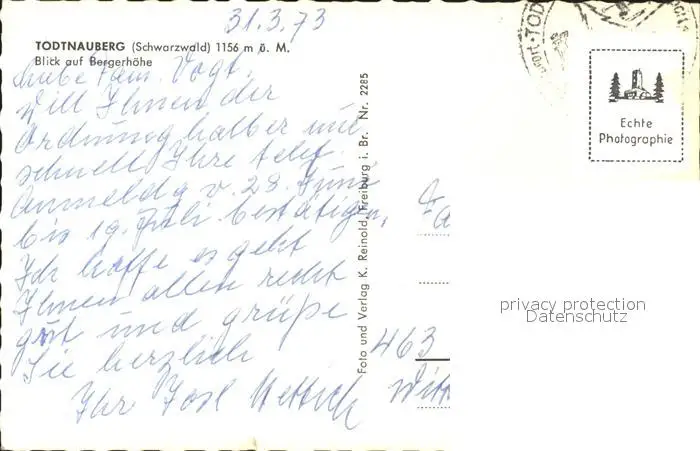 31.3.73
TODTNAUBERG (Schwarzwald) 1156 m ü. M.
Blick auf Bergerhöhe
Liebe Fam. Vogt,
will Ihnen der
Ordnung halber nur
schnell Ihre telef.
Anmeldg v. 28. Juni
bis 19. Juli bestätigen,
Ich hoffe es geht
Ihnen allen recht
gut und grüße
Sie herzlich
Ihr
Foto und Verlag K. Reinold, Freiburg i. Br. Nr. 2285
TOD
Echte
Photographie
Fa
463
Witt
privacy protection
Datenschutz